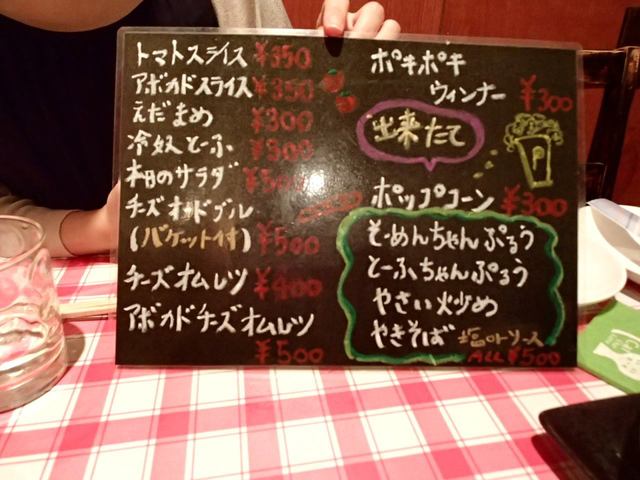 トマトスライス ¥350
アボカドスライス ¥350
えだまめ ¥300
冷奴とーふ ¥300
本日のサラダ
チーズオードブル
(バケット付) ¥500
チーズオムレツ ¥400
アボカドチーズオムレツ
¥500
ポキポキ
ウィンナー ¥300
出来たて
ポップコーン ¥300
そーめんちゃんぷるう
とーふちゃんぷるう
やさい火炒め
やきそば 塩orソース
ALL ¥500